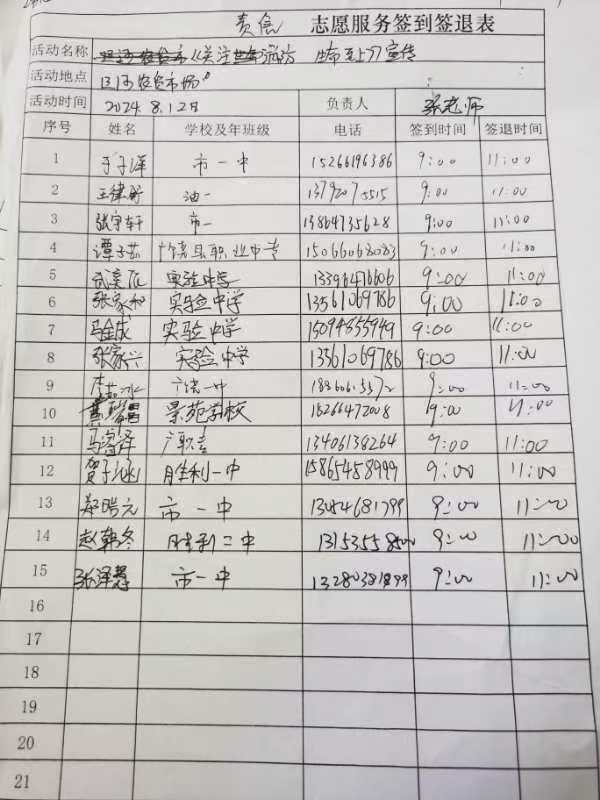 责信 志愿服务签到签退表
活动名称 《关注消防 生命至上》宣传
活动地点 农贸市场
活动时间 2024.8.12日 负责人 张老师
序号 姓名 学校及年班级 电话 签到时间 签退时间
1 于子洋 市一中 15266196386 9:00 11:00
2 油一 9:00 11:00
3 张宇轩 市一 13864735628 9:00 11:00
4 谭子茹 广饶县职业中专 15066068083 9:00 11:00
5 实验中学 13396416606 9:00 11:00
6 张家和 实验中学 13561069786 9:00 11:00
7 马金成 实验中学 15094855949 9:00 11:00
8 张家兴 实验中学 13561069786 9:00 11:00
9 李茹冰 广饶一中 9:00 11:00
10 景苑学校 18266472008 9:00 11:00
11 马睿泽 广职专 13406138264 9:00 11:00
12 贺子涵 胜利一中 15865458999 9:00 11:00
13 郑皓元 市一中 13054681799 9:00 11:00
14 赵韩冬 胜利二中 13153558500 9:00 11:00
15 张泽慧 市一中 13280381899 9:00 11:00
16
17
18
19
20
21